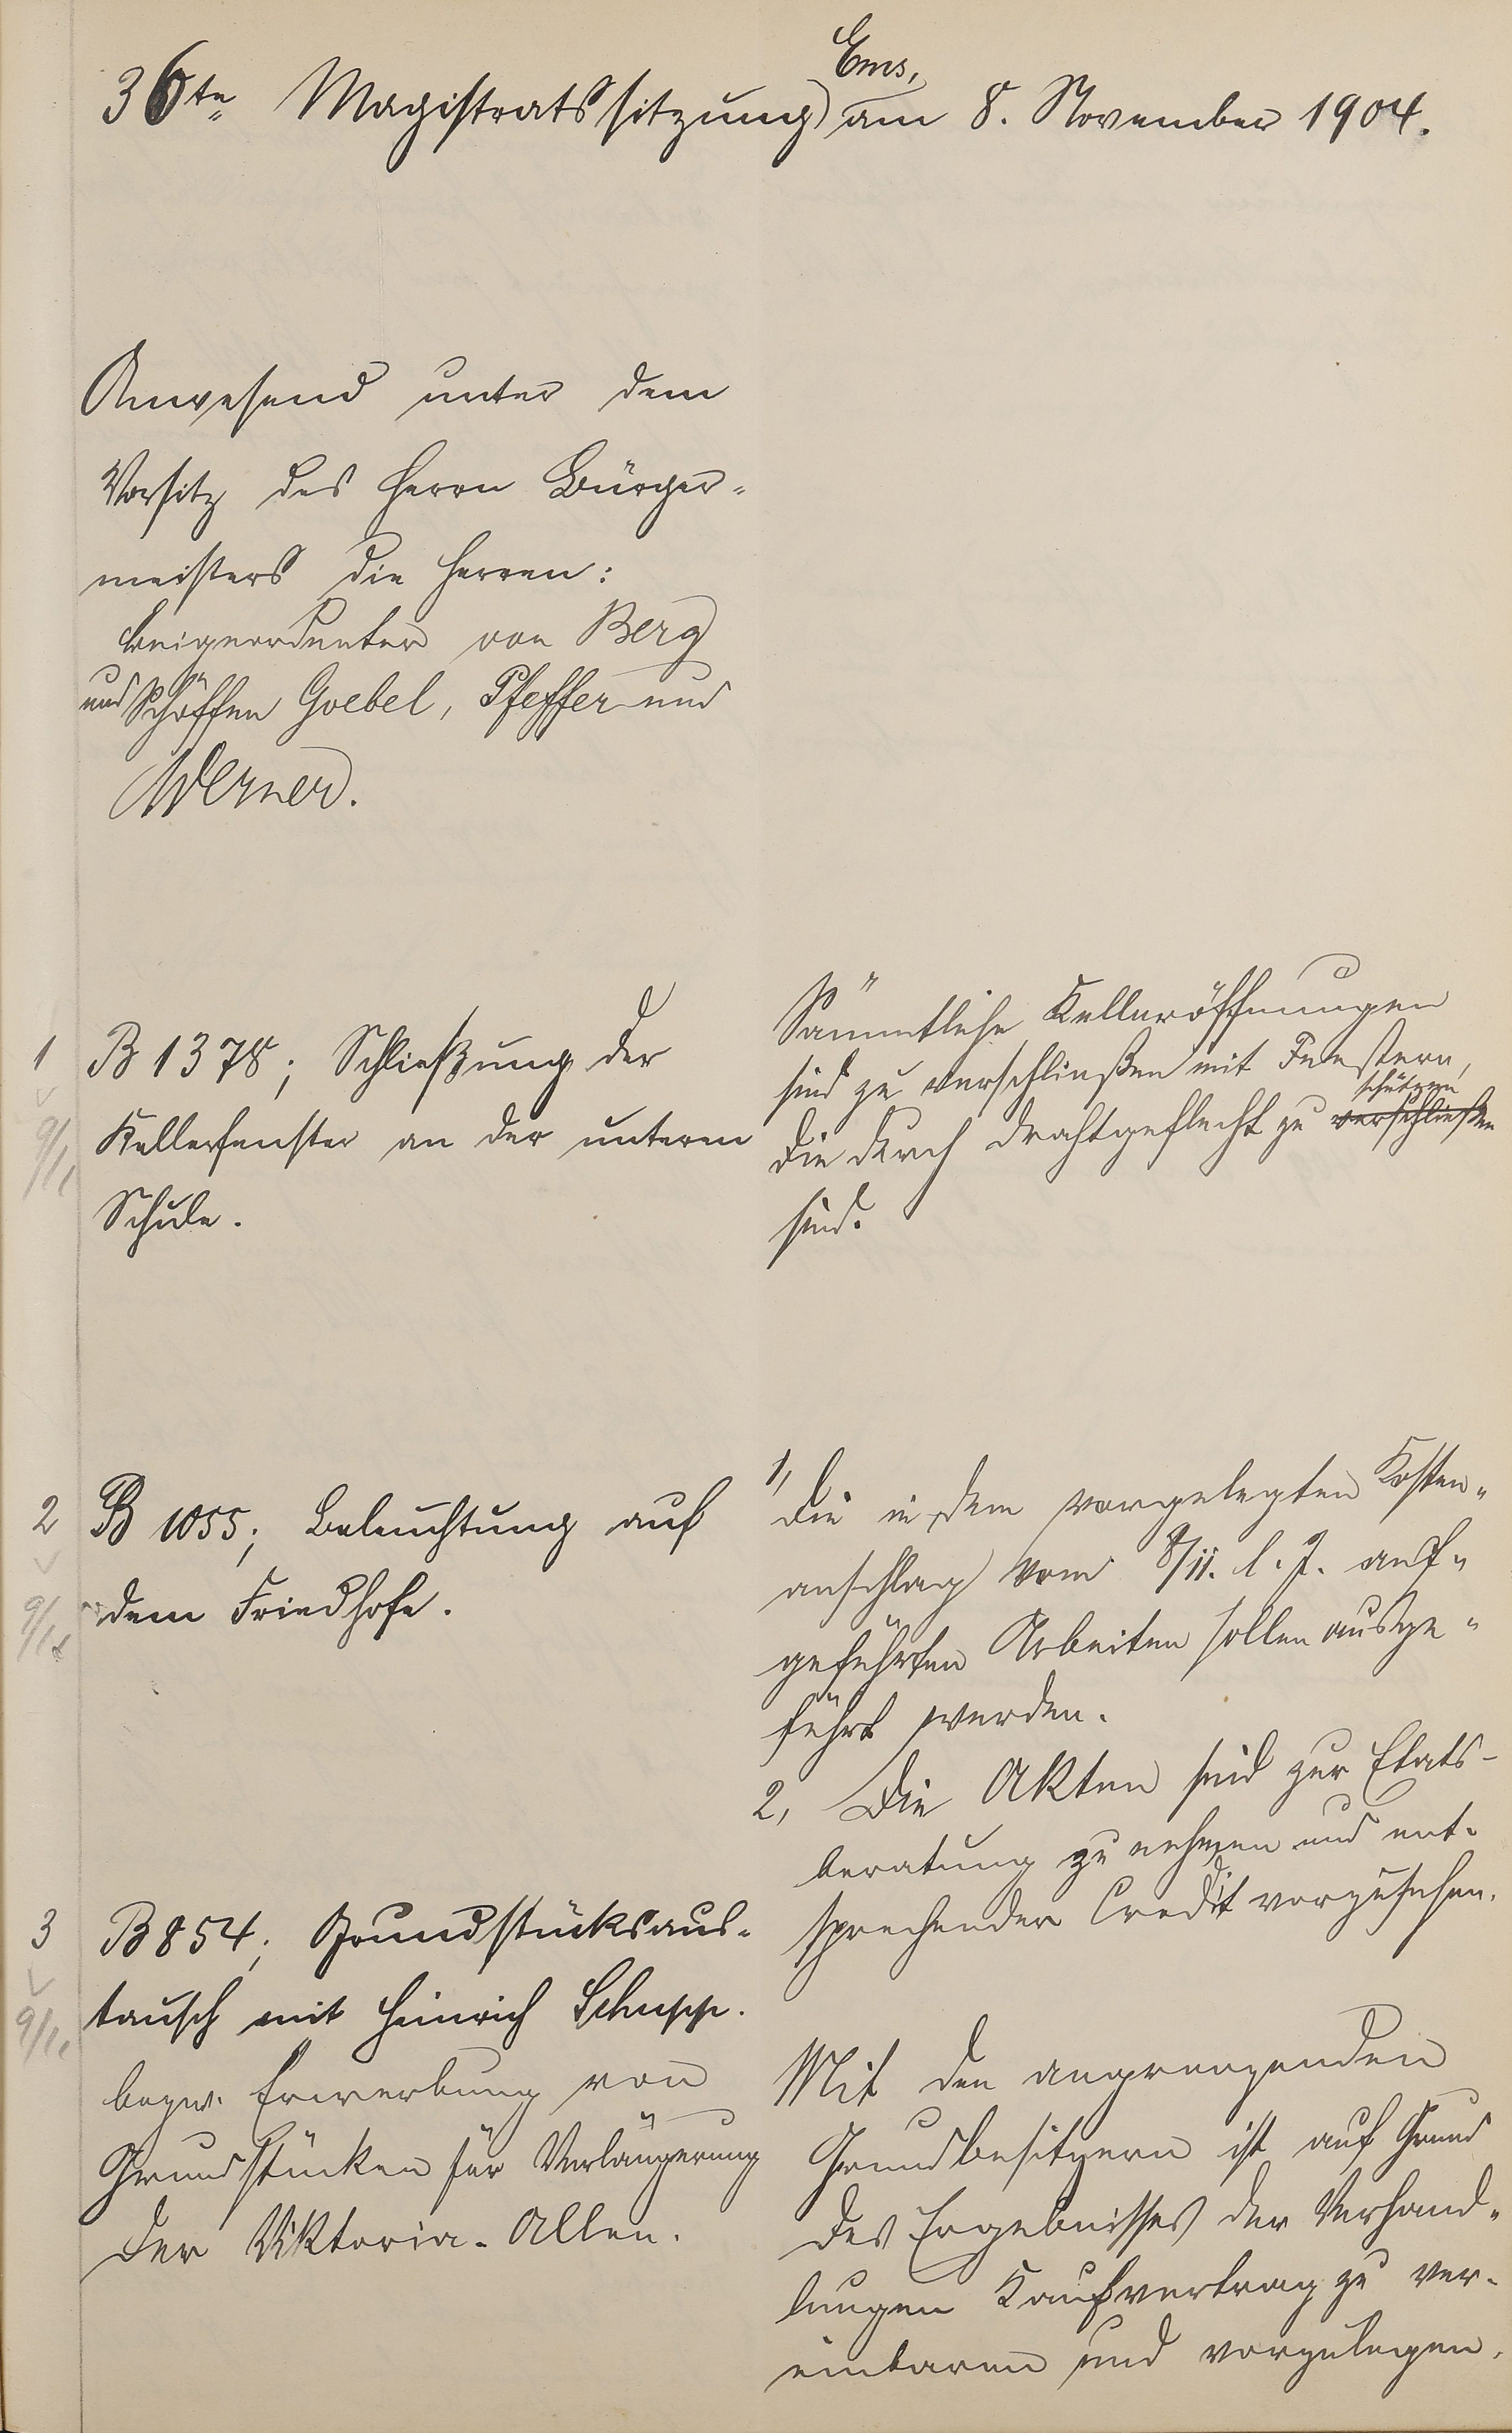 Ems,
36te Magistratssitzung am 8. November 1904.
Anwesend unter dem
Vorsitz des Herrn Bürger-
meisters die Herren:
Beigeordneter von Berg
und Schöffen Goebel, Pfeffer und
Werner.
1
9/11
B 1378; Schließung der
Kellerfenster an der unteren
Schule.
Sämmtliche Kelleröffnungen
sind zu verschließen mit Fenstern,
schützen
die durch Drahtgeflecht zu verschließen
sind.
2
9/11
B 1055; Beleuchtung auf
dem Friedhofe.
1,
Die in dem vorgelegten Kosten-
anschlag vom 8/11. l. J. auf-
geführten Arbeiten sollen ausge-
führt werden.
2, Die Akten sind zur Etats-
beratung zu nehmen und ent-
sprechender Credit vorzusehen.
3
9/11
B 854; Grundstücksaus-
tausch mit Heinrich Schupp.
bezw. Erwerbung von
Grundstücken für Verlängerung
der Viktoria-Allee.
Mit den angrenzenden
Grundbesitzern ist auf Grund
des Ergebnisses der Verhand-
lungen Kaufvertrag zu ver-
einbaren und vorzulegen.